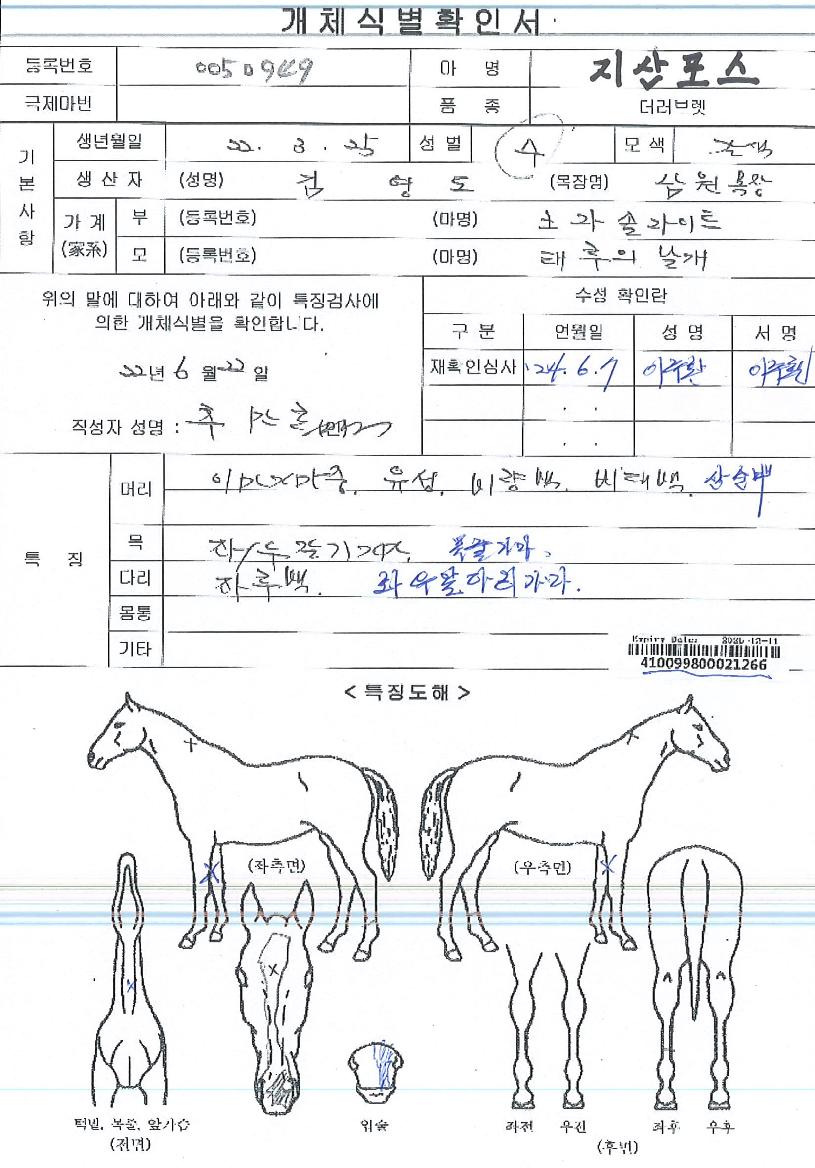 개체식별확인서
등록번호 0050949 마 명 지산포스
국제마번 품 종 더러브렛
기본사항
생년월일 22. 3. 25 성 별 수 모 색 갈색
생 산 자 (성명) 김 영 도 (목장명) 삼원목장
가 계 (家系) 부 (등록번호) (마명)
모 (등록번호) (마명) 태후의 날개
위의 말에 대하여 아래와 같이 특징검사에
의한 개체식별을 확인합니다.
22년 6 월 22 일
작성자 성명 :
수성 확인란
구 분 연월일 성 명 서 명
재확인심사 '24. 6. 7
특 징
머리 유성, 비량백, 산순백
목 목골가마.
다리
몸통
기타
Expiry Date:
410099800021266
< 특징도해 >
(좌측면) (우측면)
턱밑, 목줄, 앞가슴
(전면)
입술
좌전 우전 좌후 우후
(후면)